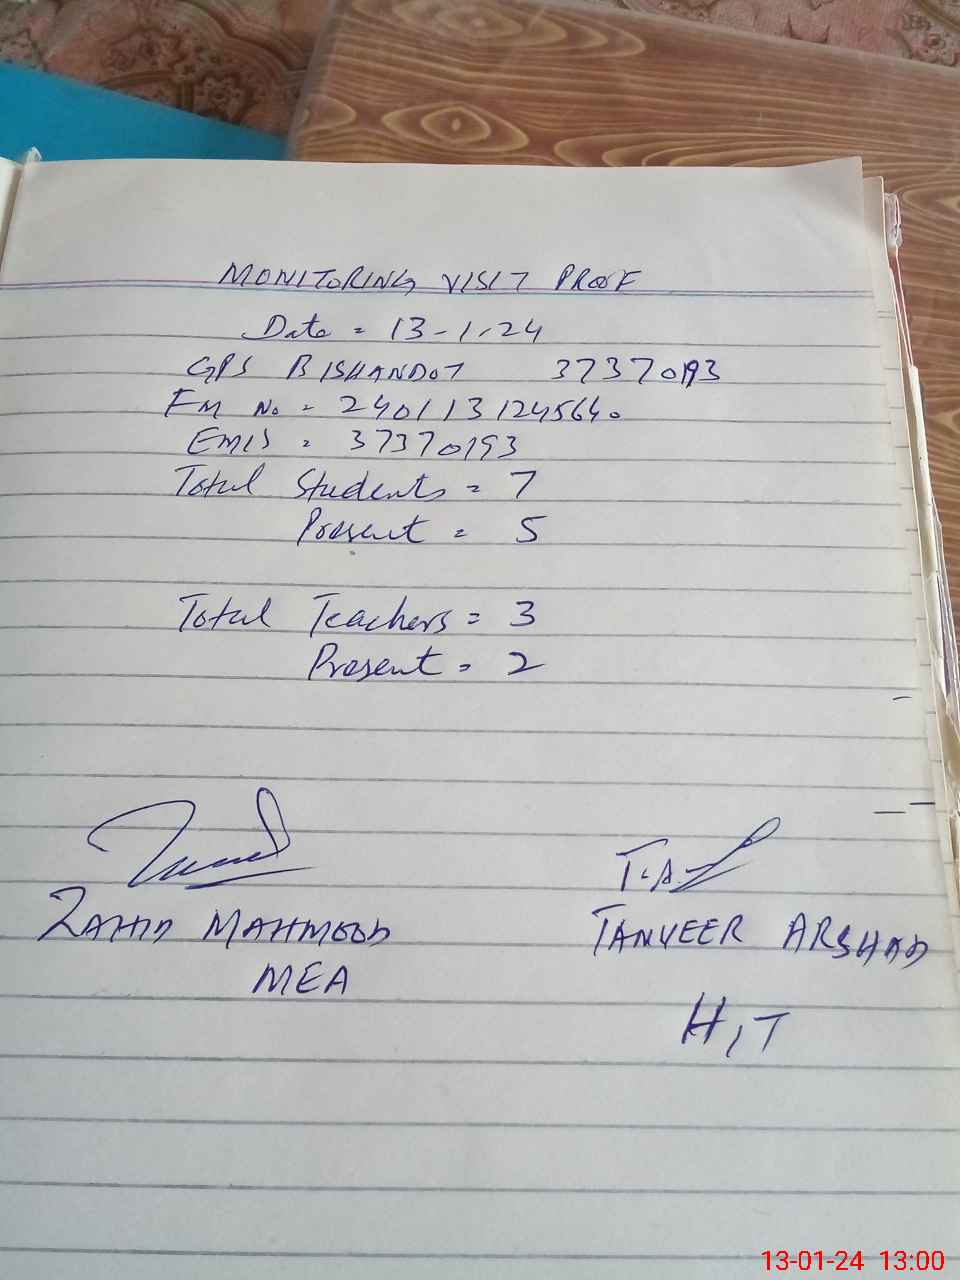 MONITORING VISIT PROOF
Date = 13-1-24
GPS BISHANDOT 37370193
FM No = 240113124564.
EMIS = 37370193
Total Students = 7
Present = 5
Total Teachers = 3
Present = 2
T.A
ZAHID MAHMOOD
TANVEER ARSHAD
MEA
H,T
13-01-24 13:00